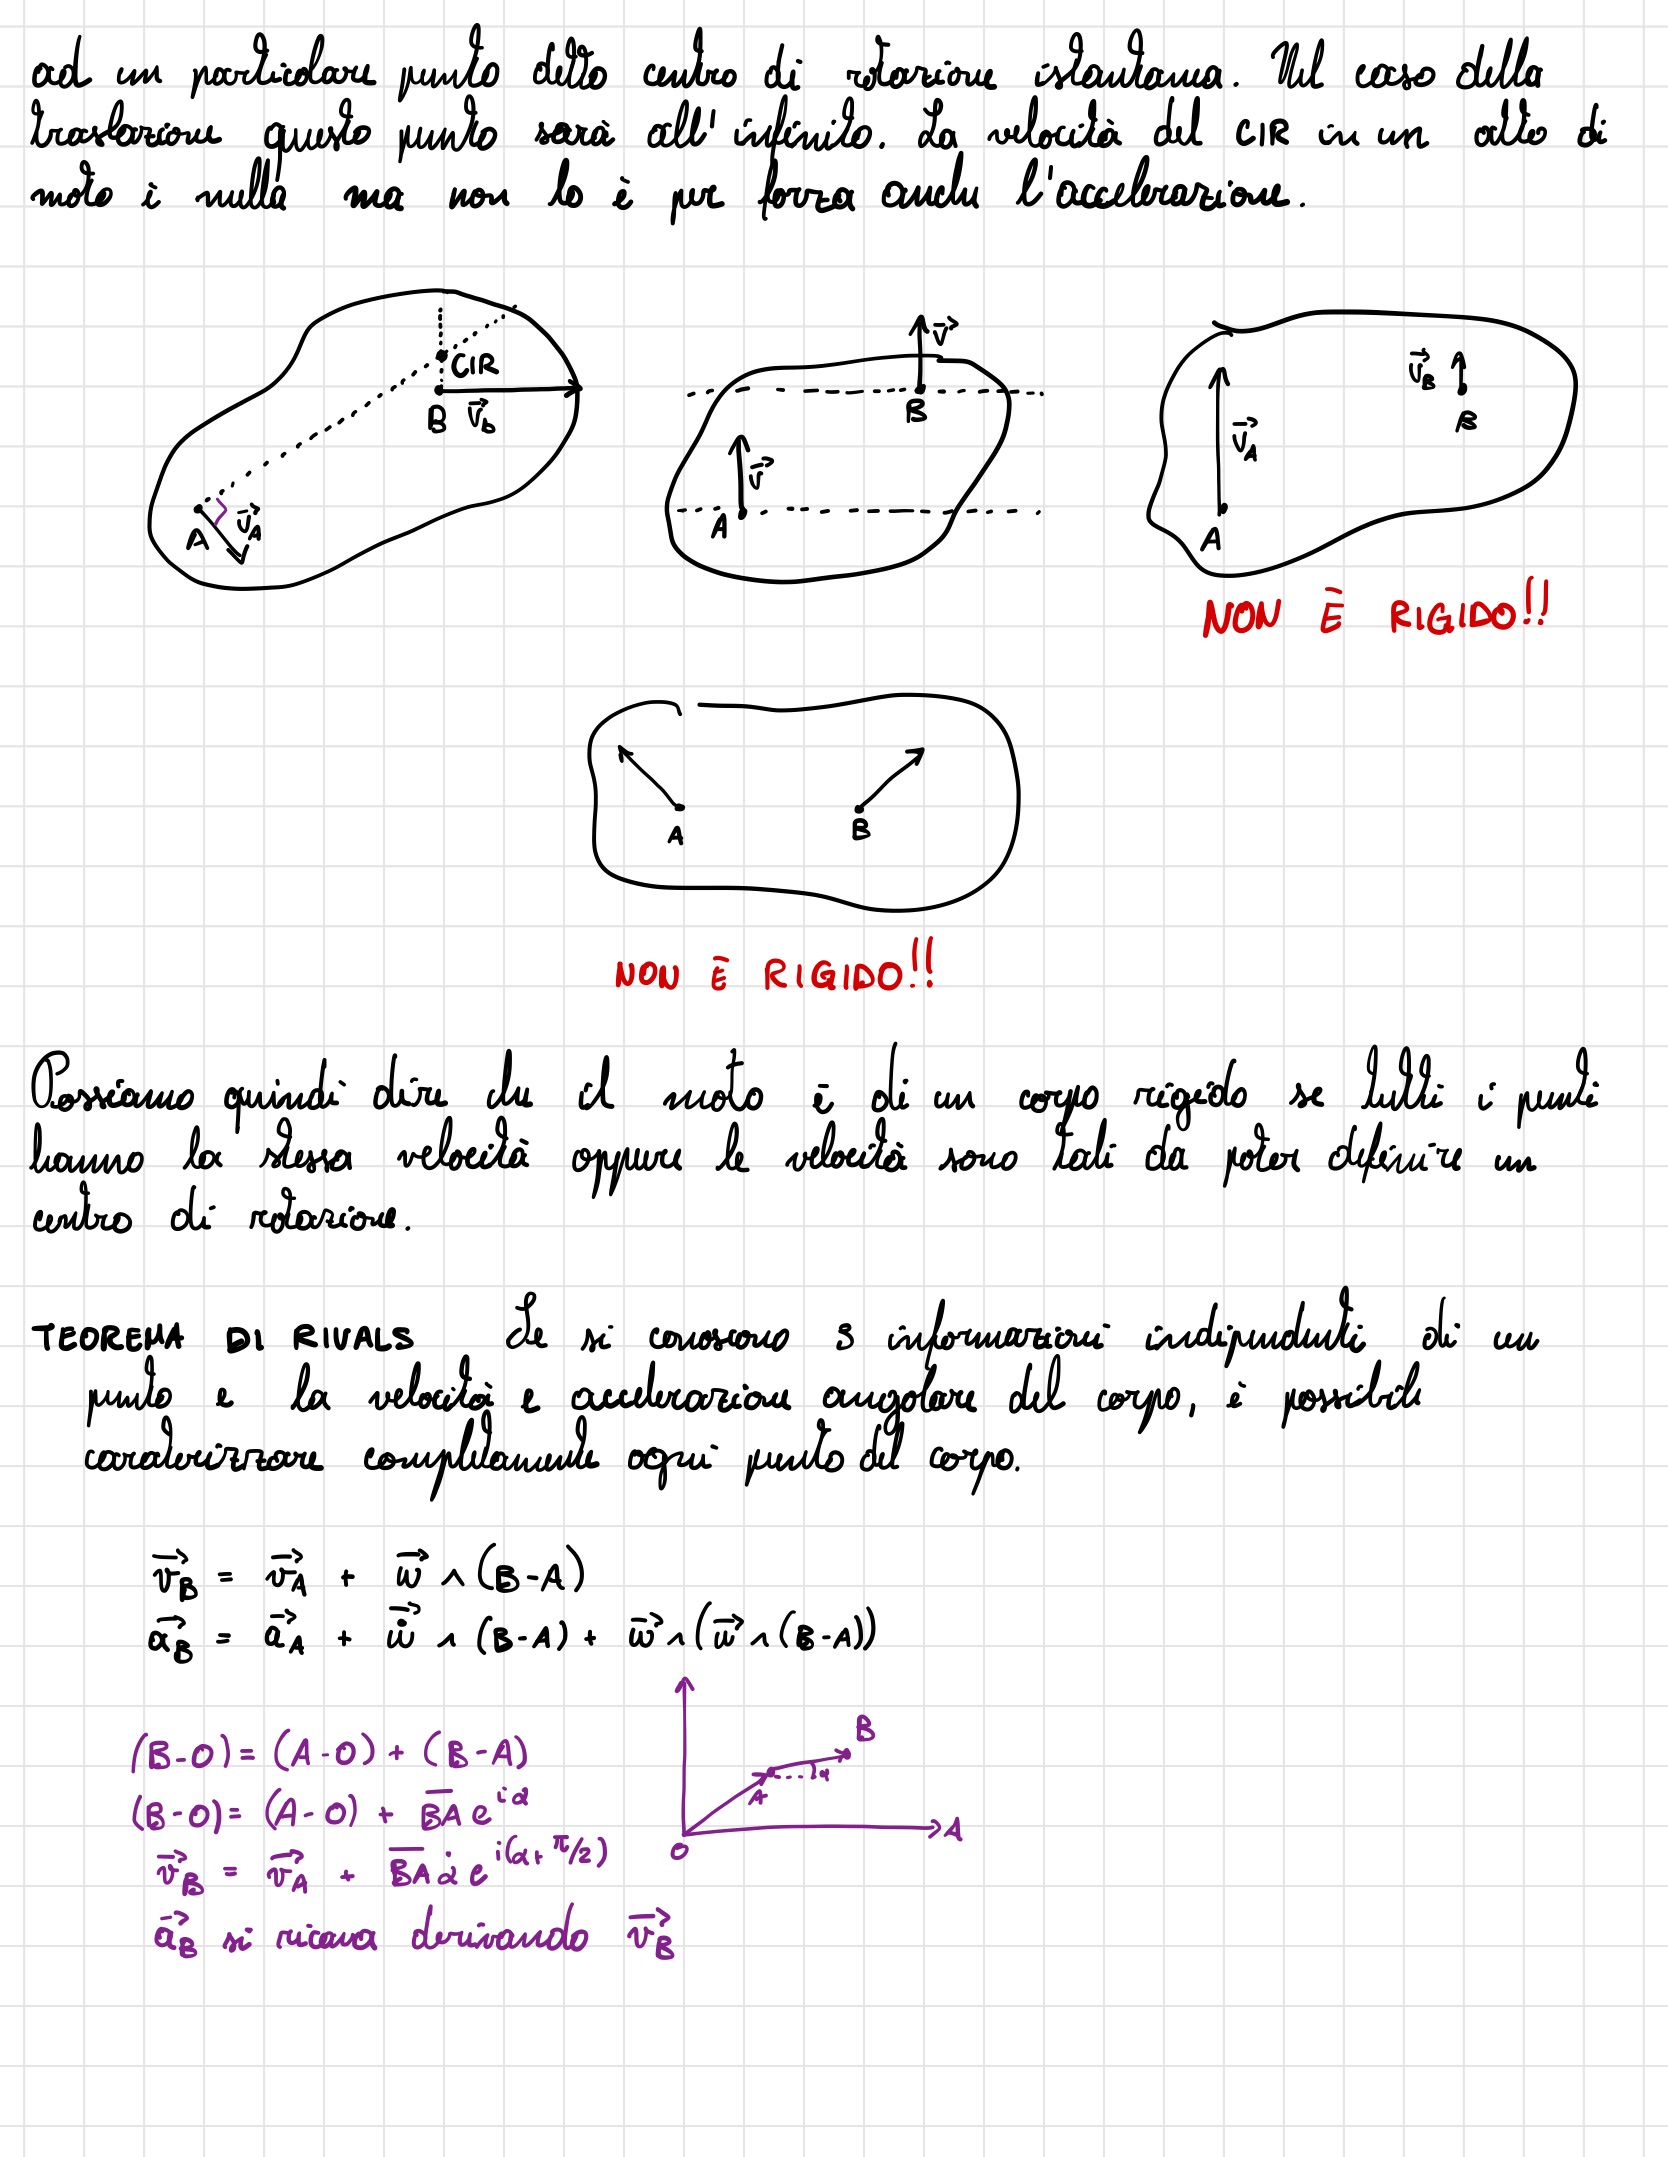 ad un particolare punto detto centro di rotazione istantanea. Nel caso della
traslazione questo punto sarà all'infinito. La velocità del CIR in un atto di
moto è nulla ma non lo è per forza anche l'accelerazione.
CIR
B v⃗_b
A v⃗_A
v⃗
B
v⃗
A
v⃗_B
B
v⃗_A
A
NON È RIGIDO!!
A
B
NON È RIGIDO!!
Possiamo quindi dire che il moto è di un corpo rigido se tutti i punti
hanno la stessa velocità oppure le velocità sono tali da poter definire un
centro di rotazione.
TEOREMA DI RIVALS Se si conoscono 3 informazioni indipendenti di un
punto e la velocità e accelerazione angolare del corpo, è possibile
caraterizzare completamente ogni punto del corpo.
v⃗_B = v⃗_A + w⃗ ∧ (B-A)
a⃗_B = a⃗_A + ẇ⃗ ∧ (B-A) + w⃗ ∧ (w⃗ ∧ (B-A))
(B-O) = (A-O) + (B-A)
(B-O) = (A-O) + B̅A̅ e^{iα}
v⃗_B = v⃗_A + B̅A̅ α̇ e^{i(α+π/2)}
a⃗_B si ricava derivando v⃗_B
B
A
α
O
A